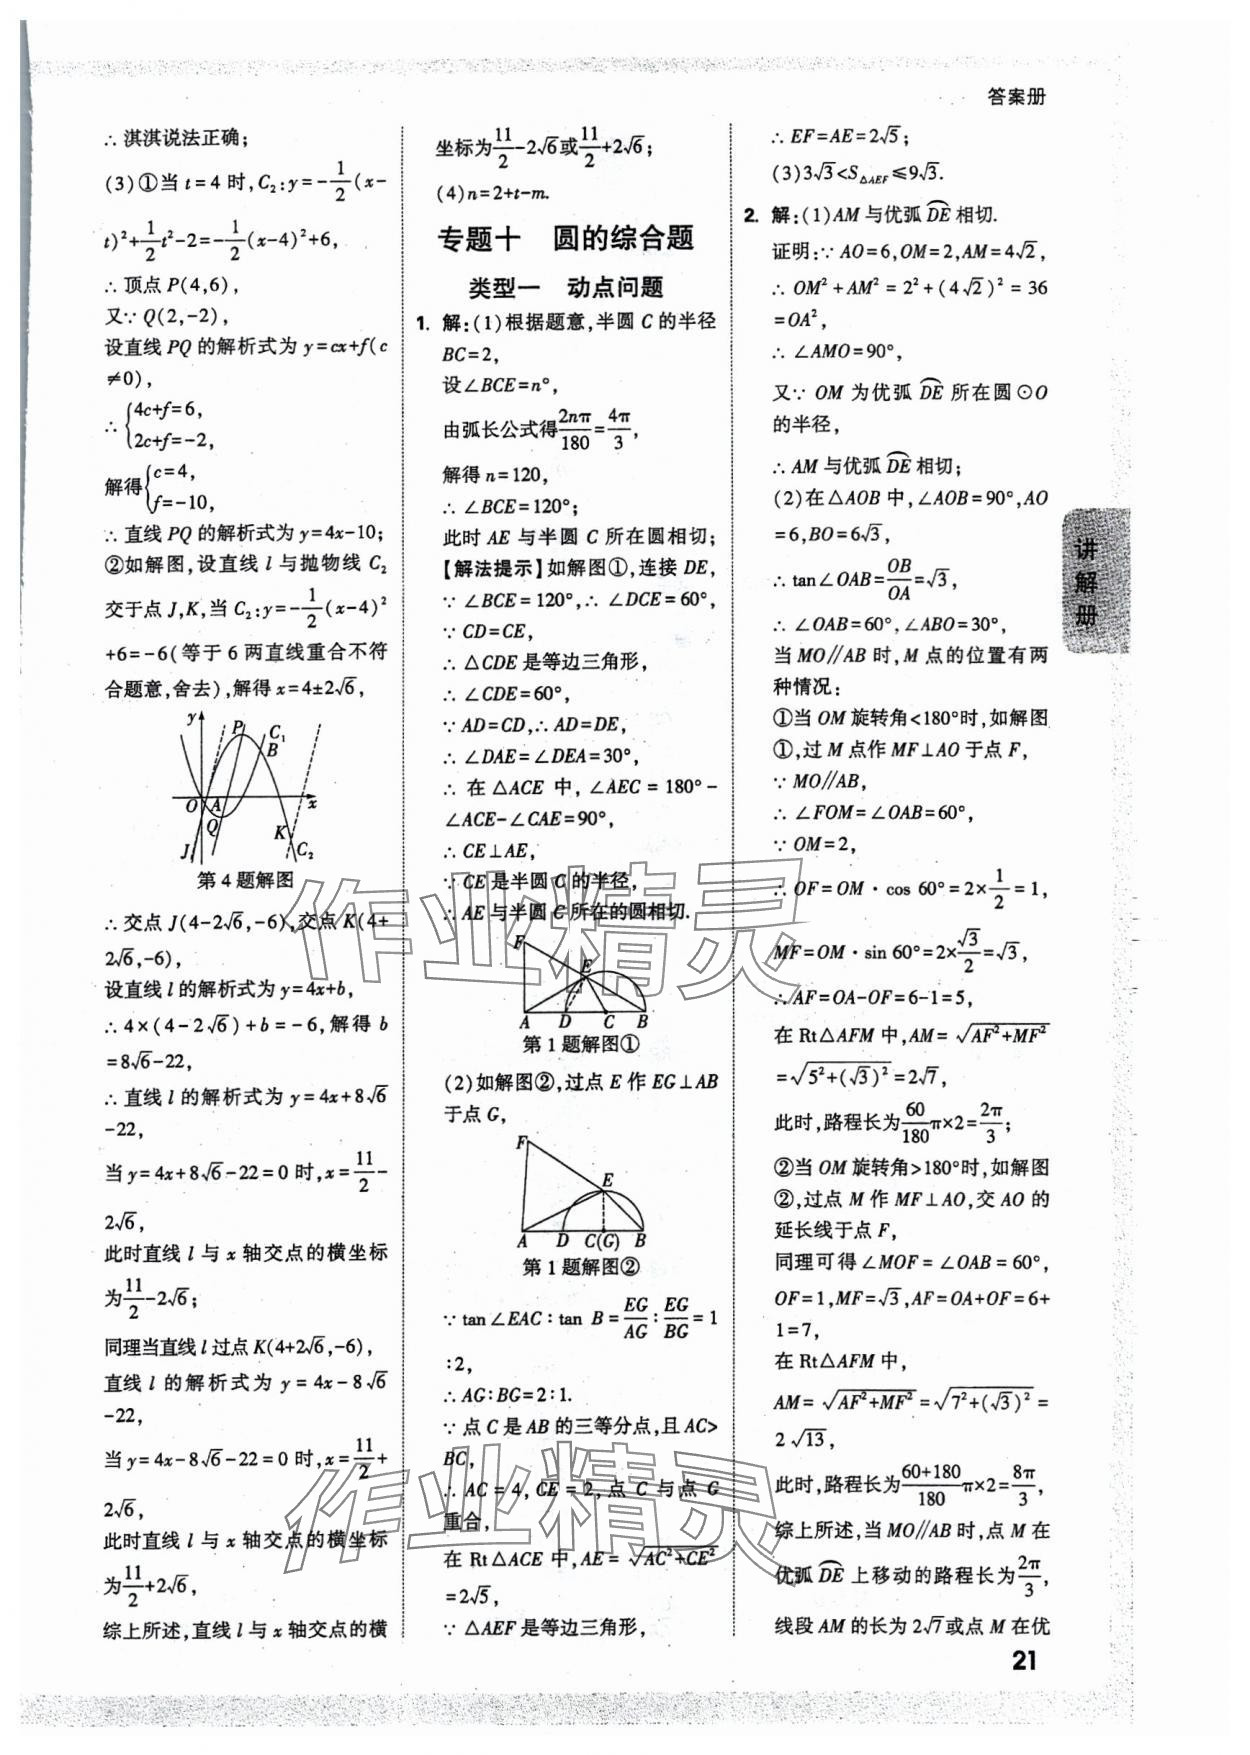 答案册
∴ 淇淇说法正确；
(3)①当 t=4 时，C₂:y=-1/2(x-
t)²+1/2t²-2=-1/2(x-4)²+6，
∴ 顶点 P(4,6)，
又∵ Q(2,-2)，
设直线 PQ 的解析式为 y=cx+f(c
≠0)，
∴ {4c+f=6，
2c+f=-2，
解得{c=4，
f=-10，
∴ 直线 PQ 的解析式为 y=4x-10；
②如解图，设直线 l 与抛物线 C₂
交于点 J,K，当 C₂:y=-1/2(x-4)²
+6=-6(等于 6 两直线重合不符
合题意，舍去)，解得 x=4±2√6，
y P C₁ B O A x Q K J C₂
第 4 题解图
∴ 交点 J(4-2√6,-6)，交点 K(4+
2√6,-6)，
设直线 l 的解析式为 y=4x+b，
∴ 4×(4-2√6)+b=-6，解得 b
=8√6-22，
∴ 直线 l 的解析式为 y=4x+8√6
-22，
当 y=4x+8√6-22=0 时，x=11/2-
2√6，
此时直线 l 与 x 轴交点的横坐标
为11/2-2√6；
同理当直线 l 过点 K(4+2√6,-6)，
直线 l 的解析式为 y=4x-8√6
-22，
当 y=4x-8√6-22=0 时，x=11/2+
2√6，
此时直线 l 与 x 轴交点的横坐标
为11/2+2√6，
综上所述，直线 l 与 x 轴交点的横
坐标为11/2-2√6或11/2+2√6；
(4)n=2+t-m.
专题十 圆的综合题
类型一 动点问题
1. 解：(1)根据题意，半圆 C 的半径
BC=2，
设∠BCE=n°，
由弧长公式得2nπ/180=4π/3，
解得 n=120，
∴ ∠BCE=120°；
此时 AE 与半圆 C 所在圆相切；
【解法提示】如解图①，连接 DE，
∵ ∠BCE=120°，∴ ∠DCE=60°，
∵ CD=CE，
∴ △CDE 是等边三角形，
∴ ∠CDE=60°，
∵ AD=CD，∴ AD=DE，
∴ ∠DAE=∠DEA=30°，
∴ 在 △ACE 中，∠AEC=180°-
∠ACE-∠CAE=90°，
∴ CE⊥AE，
∵ CE 是半圆 C 的半径，
∴ AE 与半圆 C 所在的圆相切.
F E A D C B
第 1 题解图①
(2)如解图②，过点 E 作 EG⊥AB
于点 G，
F E A D C(G) B
第 1 题解图②
∵ tan∠EAC∶tan B=EG/AG∶EG/BG=1
∶2，
∴ AG∶BG=2∶1.
∵ 点 C 是 AB 的三等分点，且 AC>
BC，
∴ AC=4，CE=2，点 C 与点 G
重合，
在 Rt△ACE 中，AE=√(AC²+CE²)
=2√5，
∵ △AEF 是等边三角形，
∴ EF=AE=2√5；
(3)3√3<S△AEF≤9√3.
2. 解：(1)AM 与优弧DE⌒相切.
证明：∵ AO=6，OM=2，AM=4√2，
∴ OM²+AM²=2²+(4√2)²=36
=OA²，
∴ ∠AMO=90°，
又∵ OM 为优弧 DE⌒ 所在圆⊙O
的半径，
∴ AM 与优弧DE⌒相切；
(2)在△AOB 中，∠AOB=90°，AO
=6，BO=6√3，
∴ tan∠OAB=OB/OA=√3，
∴ ∠OAB=60°，∠ABO=30°，
当 MO∥AB 时，M 点的位置有两
种情况：
①当 OM 旋转角<180°时，如解图
①，过 M 点作 MF⊥AO 于点 F，
∵ MO∥AB，
∴ ∠FOM=∠OAB=60°，
∵ OM=2，
∴ OF=OM·cos 60°=2×1/2=1，
MF=OM·sin 60°=2×√3/2=√3，
∴ AF=OA-OF=6-1=5，
在 Rt△AFM 中，AM=√(AF²+MF²)
=√(5²+(√3)²)=2√7，
此时，路程长为60/180π×2=2π/3；
②当 OM 旋转角>180°时，如解图
②，过点 M 作 MF⊥AO，交 AO 的
延长线于点 F，
同理可得∠MOF=∠OAB=60°，
OF=1，MF=√3，AF=OA+OF=6+
1=7，
在 Rt△AFM 中，
AM=√(AF²+MF²)=√(7²+(√3)²)=
2√13，
此时，路程长为(60+180)/180π×2=8π/3，
综上所述，当 MO∥AB 时，点 M 在
优弧 DE⌒ 上移动的路程长为2π/3，
线段 AM 的长为 2√7或点 M 在优
讲解册
21
作业精灵
作业精灵